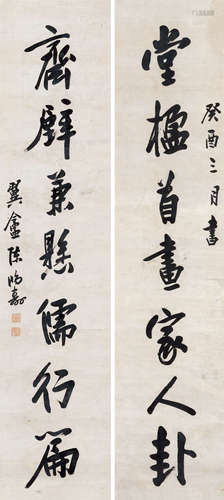 癸酉三月書
堂楹首畫家人卦
齋壁兼懸儒行篇
盦陳嘉